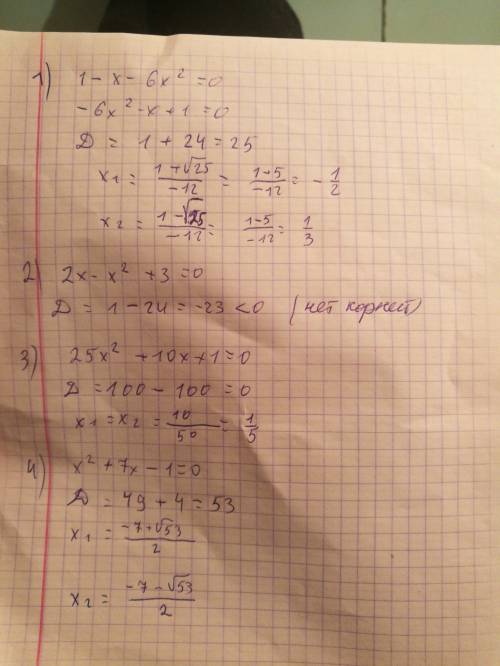 1) 1 - x - 6x² = 0
-6x² - x + 1 = 0
D = 1 + 24 = 25
x₁ = (1+√25)/-12 = (1+5)/-12 = -1/2
x₂ = (1-√25)/-12 = (1-5)/-12 = 1/3
2) 2x - x² + 3 = 0
D = 1 - 24 = -23 < 0 (нет корней)
3) 25x² + 10x + 1 = 0
D = 100 - 100 = 0
x₁ = x₂ = 10/50 = 1/5
4) x² + 7x - 1 = 0
D = 49 + 4 = 53
x₁ = (-7+√53)/2
x₂ = (-7-√53)/2